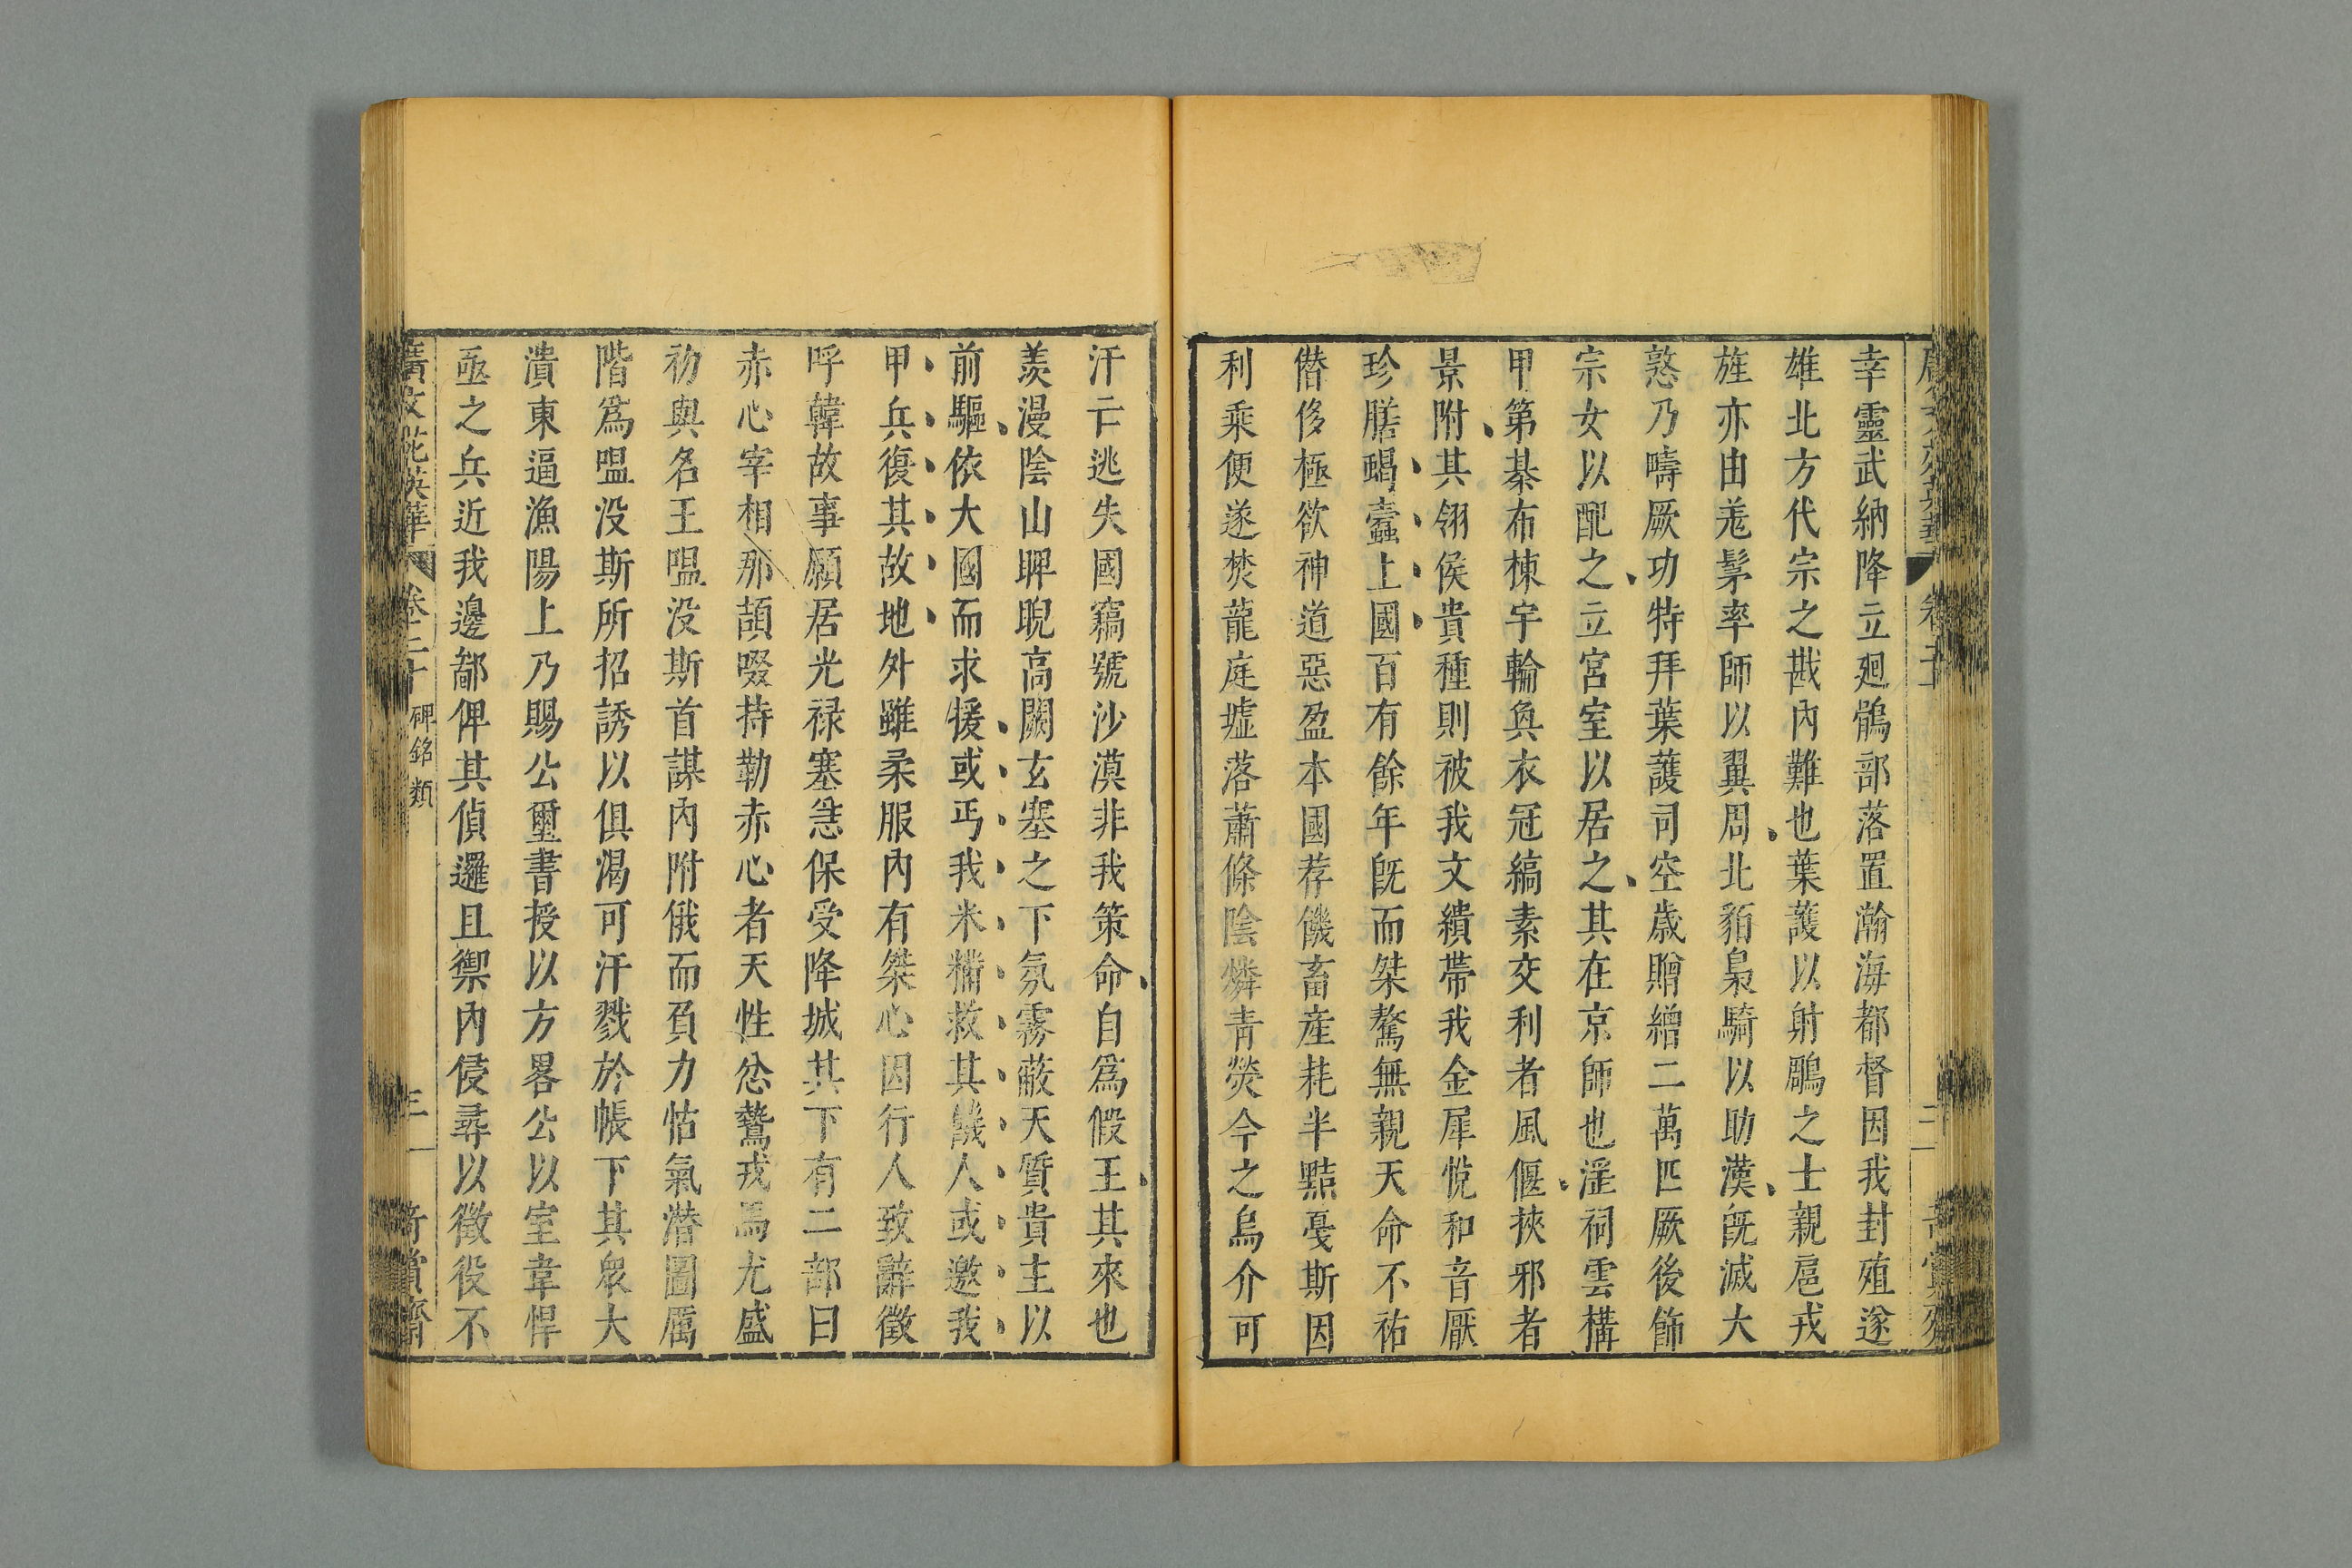 幸靈武納降立廻鶻部落置瀚海都督因我封殖遂
雄北方代宗之戡內難也葉護以射鵰之士親扈戎
旌亦由羗髳率師以翼周北貊梟騎以助漢旣滅大
憝乃疇厥功特拜葉護司空歲贈繒二萬匹厥後飾
宗女以配之立宮室以居之其在京師也滛祠雲構
甲第棊布棟宇輪奐衣冠縞素交利者風偃挾邪者
景附其翎侯貴種則被我文繢帶我金犀恱和音厭
珍膳蝎蠧上國百有餘年旣而桀驁無親天命不祐
僣侈極欲神道惡盈本國荐饑畜產耗半黠戞斯因
利乘便遂焚龍庭墟落蕭條陰燐青熒今之烏介可
汗亡逃失國竊號沙漠非我策命自爲假王其來也
羨漫陰山睥睨高闕玄塞之下氛霧蔽天質貴主以
前驅依大國而求援或丐我米糒救其饑人或邀我
甲兵復其故地外雖柔服內有桀心因行人致辭徵
呼韓故事願居光禄塞急保受降城其下有二部曰
赤心宰相那頡啜持勒赤心者天性忿鷙戎馬尤盛
初與名王嗢没斯首謀內附俄而負力怙氣潜圖厲
階爲嗢没斯所招誘以俱渴可汗戮於帳下其衆大
潰東逼漁陽上乃賜公璽書授以方畧公以室韋悍
亟之兵近我邊鄙俾其偵邏且禦內侵尋以徵役不
廣文苑英華 卷二十 碑銘類 三一 奇賞齋